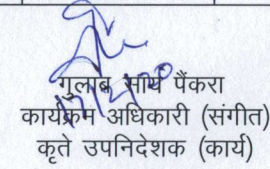 गुलाब साय पैंकरा
17/2/20
कार्यक्रम अधिकारी (संगीत)
कृते उपनिदेशक (कार्य)